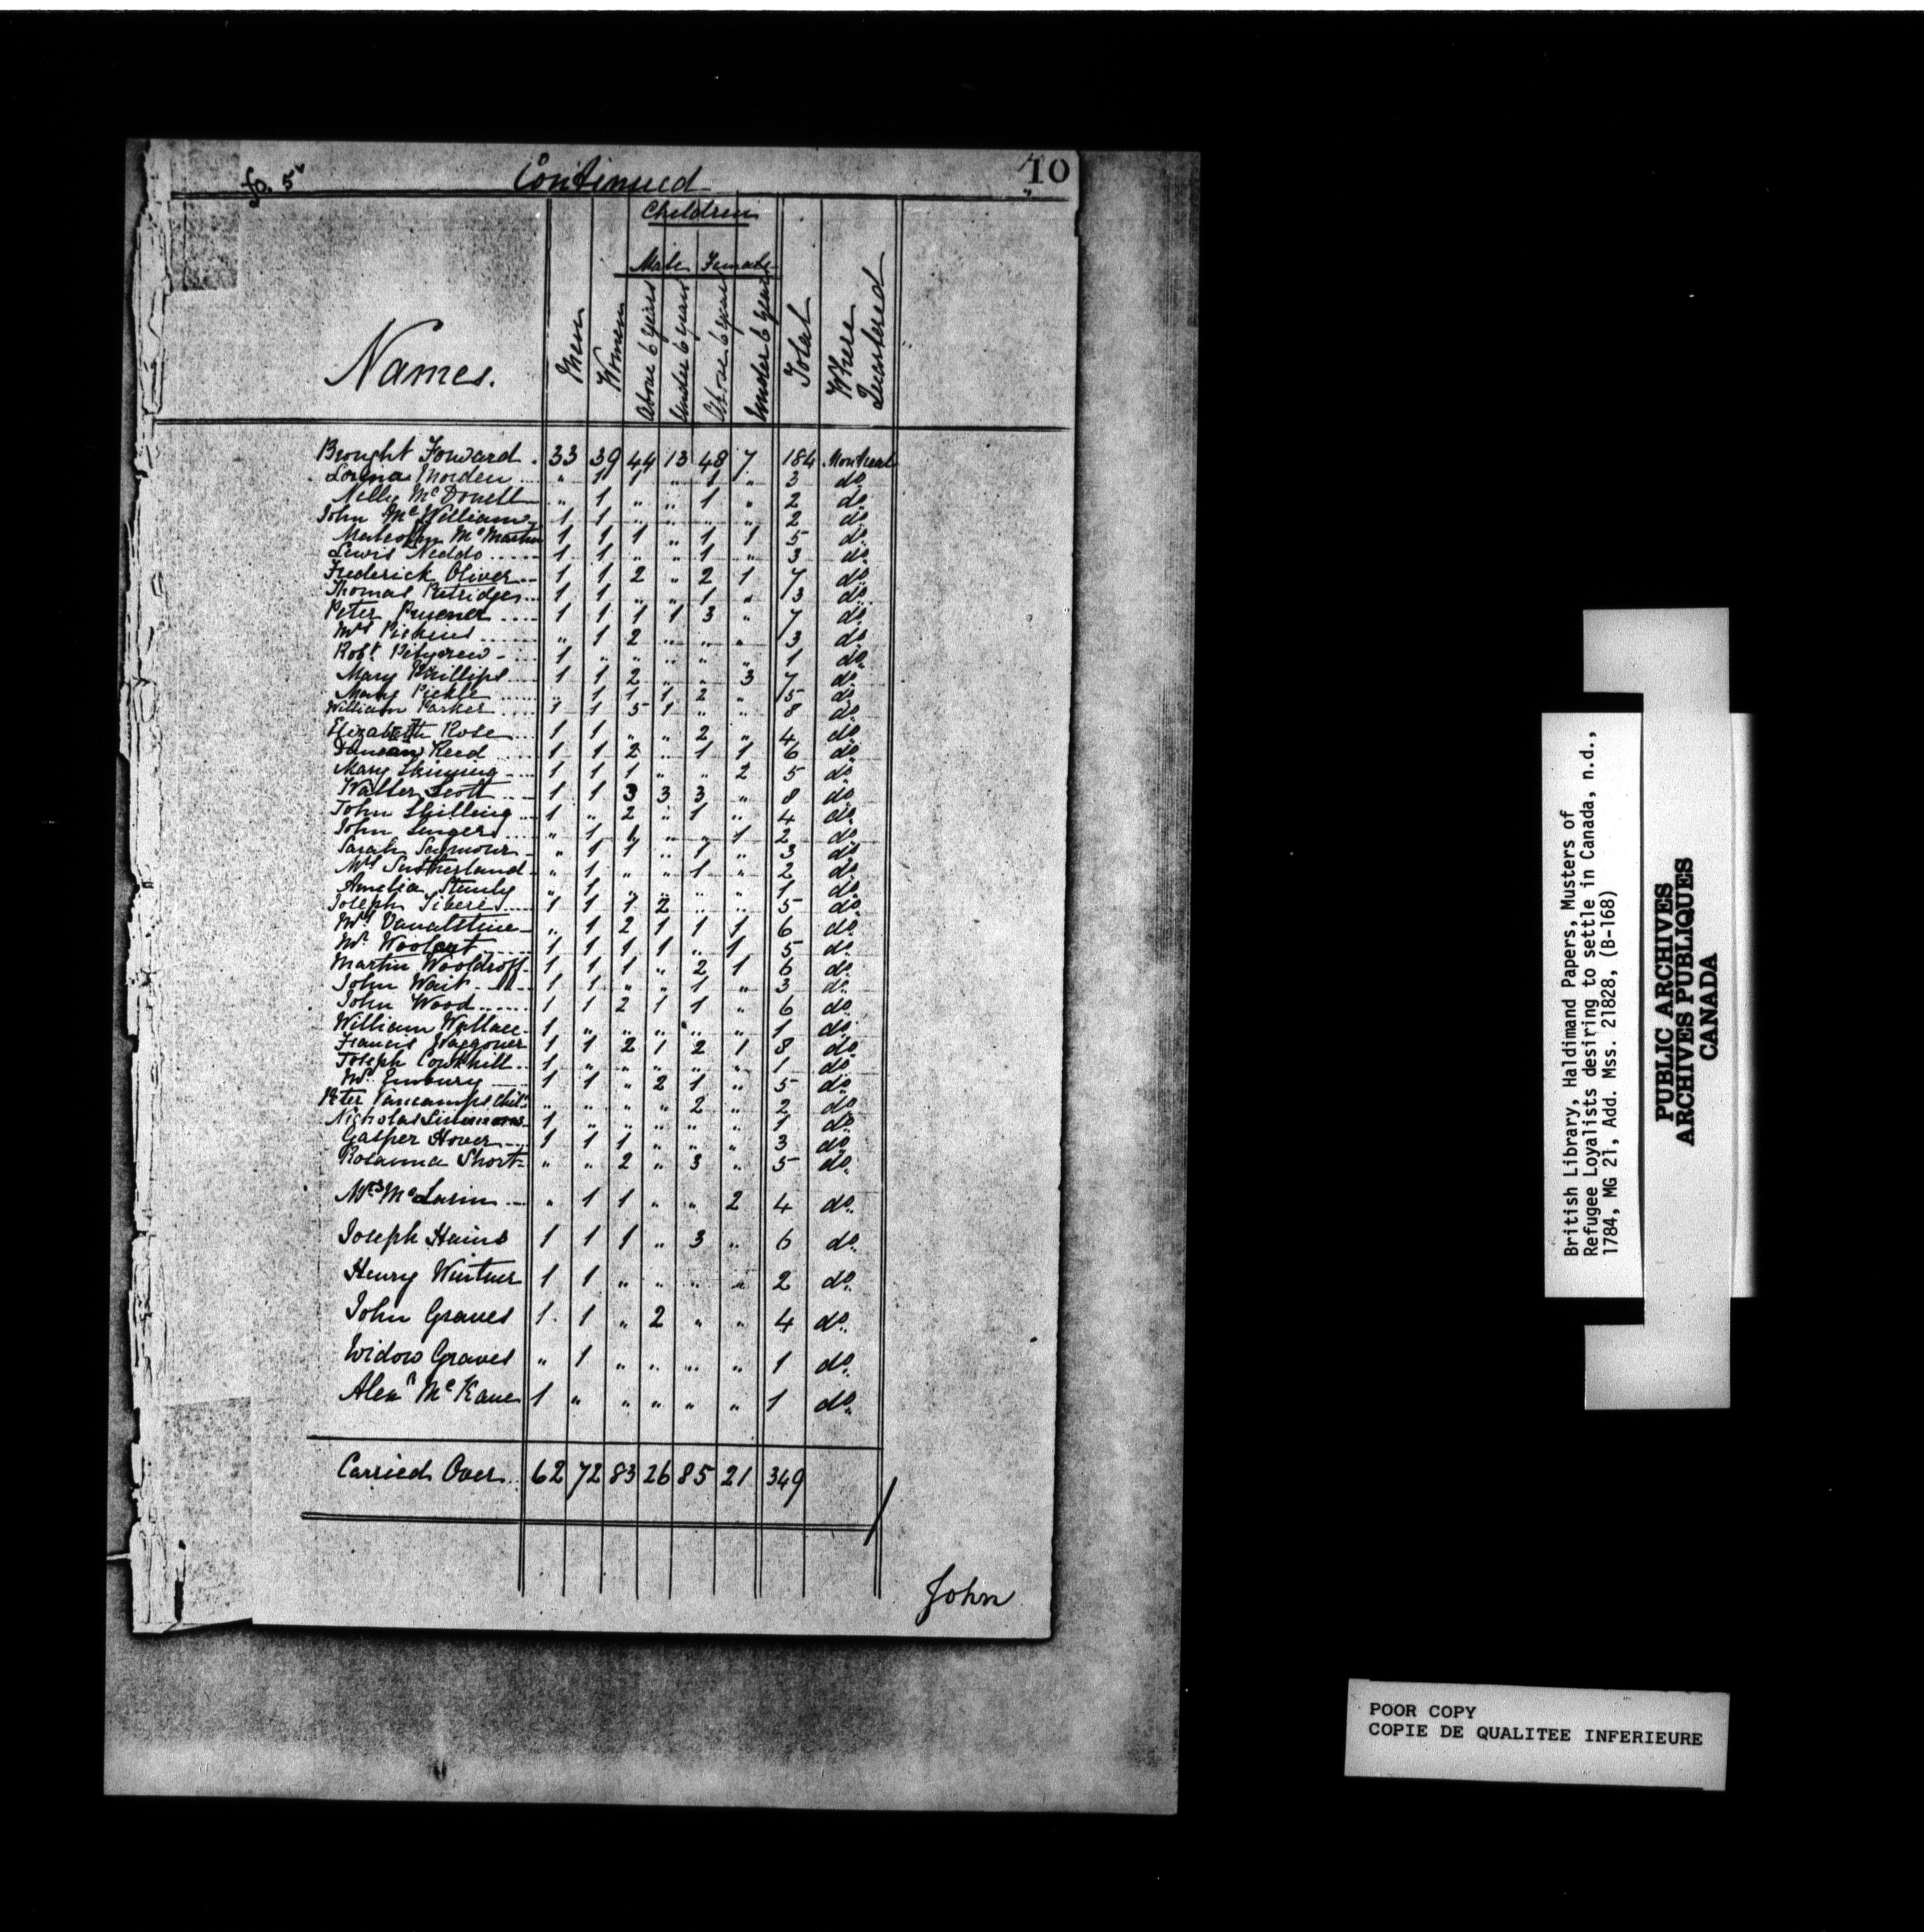 fo. 5v
Continued
10
Children
Male Female
Names.
Men
Women
Above 6 years
Under 6 years
Above 6 years
Under 6 years
Total
Where Quartered
Brought Forward . 33 39 44 13 48 7 184 Montreal
Morden " 1 1 " 1 " 3 do
Nelly McDonell " 1 " " 1 " 2 do
John McWilliams 1 1 " " " " 2 do
Malcolm McMartin 1 1 1 " 1 1 5 do
Lewis Neddo 1 1 " " 1 " 3 do
Frederick Oliver 1 1 2 " 2 1 7 do
Thomas 1 1 " " 1 " 3 do
Peter Pruener 1 1 1 1 3 " 7 do
Mrs Pickens " 1 2 " " " 3 do
Robt Petygrew 1 " " " " " 1 do
Mary Phillips 1 1 2 " " 3 7 do
Mary Pickle " 1 1 1 2 " 5 do
William Parker 1 1 5 1 " " 8 do
Elizabeth Rose 1 1 " " 2 " 4 do
Duncan Reed 1 1 2 " 1 1 6 do
Mary 1 1 1 " " 2 5 do
Walter Scott 1 1 3 3 3 " 8 do
John Shilling 1 " 2 " 1 " 4 do
John Singers " 1 " " 1 2 do
Sarah Seymour " 1 1 " 1 " 3 do
Mrs Sutherland " 1 " " 1 " 2 do
Amelia Stanly " 1 " " " " 1 do
Joseph Tibere 1 1 1 2 " " 5 do
Mrs Vanalstine " 1 2 1 1 1 6 do
Mr 1 1 1 1 " 1 5 do
Martin Wooldroff 1 1 1 " 2 1 6 do
John Wait 1 1 " " 1 " 3 do
John Wood 1 1 2 1 1 " 6 do
William Wallace 1 " " " " " 1 do
Francis Waggoner 1 1 2 1 2 1 8 do
Joseph Cowkhill 1 " " " " " 1 do
Mr Embury 1 1 " 2 1 " 5 do
Peter Vancamps Chiln " " " " 2 " 2 do
Nicholas Simmons 1 " " " " " 1 do
Gasper Hover 1 1 1 " " " 3 do
Rosanna Short " " 2 " 3 " 5 do
Mrs McLarin " 1 1 " " 2 4 do
Joseph Hains 1 1 1 " 3 " 6 do
Henry Wintner 1 1 " " " " 2 do
John Graves 1 1 " 2 " " 4 do
Widow Graves " 1 " " " " 1 do
Alexr McKane 1 " " " " " 1 do
Carried Over 62 72 83 26 85 21 349
John
British Library, Haldimand Papers, Musters of
Refugee Loyalists desiring to settle in Canada, n.d.,
1784, MG 21, Add. Mss. 21828, (B-168)
PUBLIC ARCHIVES
ARCHIVES PUBLIQUES
CANADA
POOR COPY
COPIE DE QUALITEE INFERIEURE